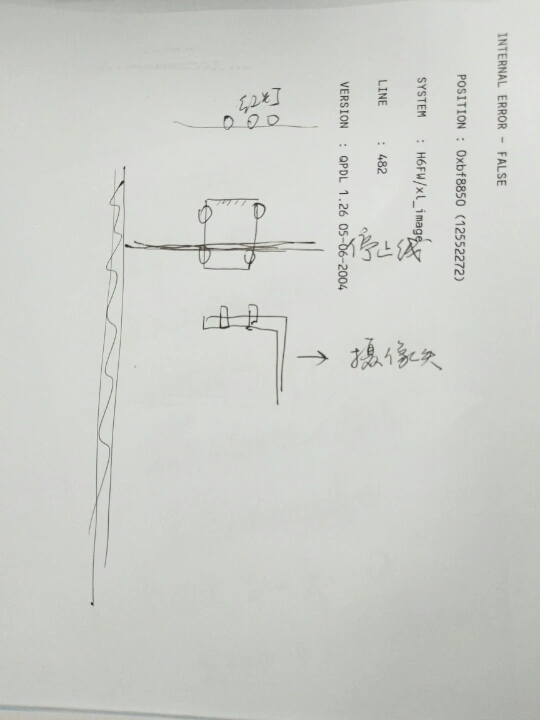 INTERNAL ERROR - FALSE
POSITION : 0xbf8850 (12552272)
SYSTEM : H6FW/xl_image
LINE : 482
VERSION : QPDL 1.26 05-06-2004
红灯
停止线
摄像头